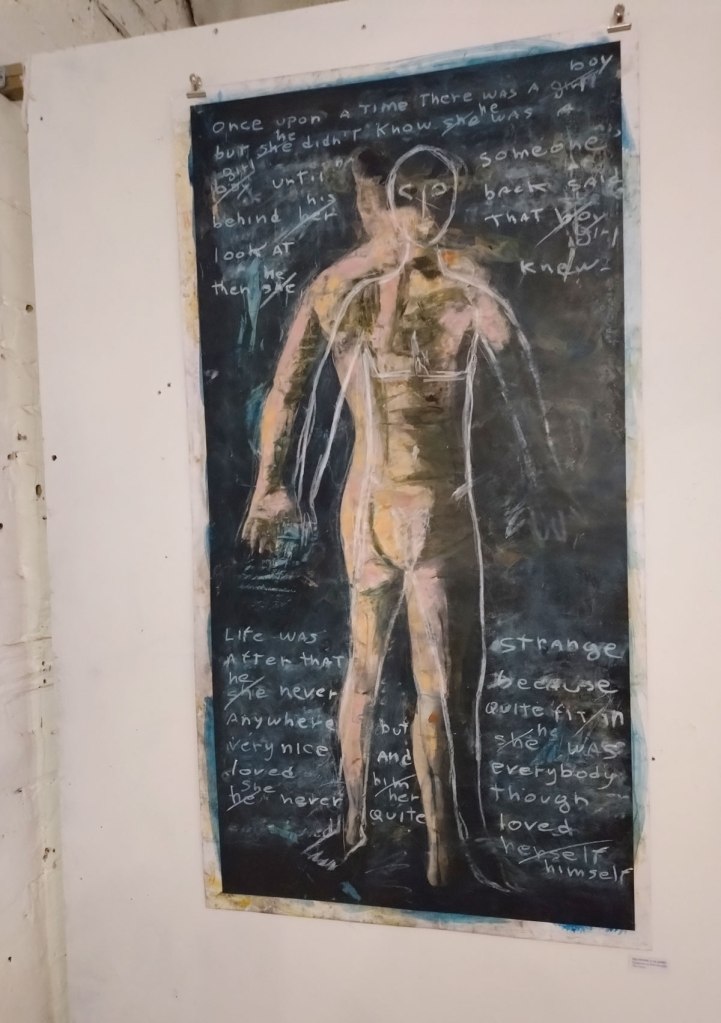 Once upon a Time There was a girl boy
but she he didn't know she he was a
girl boy until someone
behind her his back said
look AT THAT boy girl
then she he knew
Life was strange
After that because
he she never quite fit in
Anywhere but she he was
very nice and everybody
loved him her though
he she never Quite loved
herself
himself